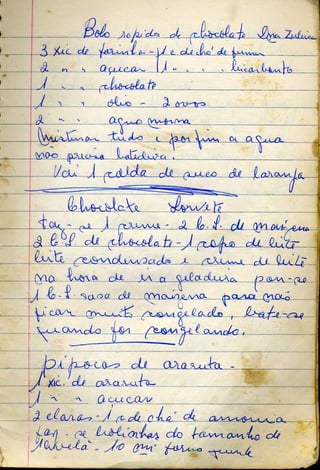 Bolo rapido de chocolate Dna Zulmira
3 xic de farinha - 1 c de chá de fermen
2 " " açucar 1 " . . . bicarbonto
1 " " chocolate
1 " " olio - 2 ovos
2 " " agua morna
Misturar tudo e por fim a agua
não precisa batedeira.
Vai 1 calda de suco de laranja
Chocolate Sorvete
Faz-se 1 creme - 2 c. S. de maizena
2 c. S. de chocolate - 1 copo de leite
leite condensado e creme de leite
na hora de ir a geladeira pon-se
1 c. S. rasa de maizena para não
ficar muito congelado, bate-se
quando for congelando.
pipocas de araruta -
1 xic. de araruta
1 " " açucar
2 claras - 1 c de chá de amonia
Faz-se bolinhas do tamanho de
10 mi forno quente